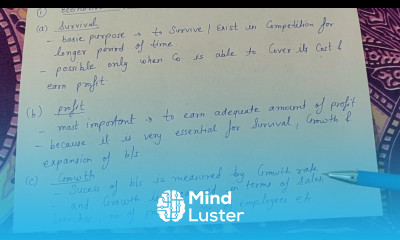 ① Economic
(a) Survival
- basic purpose → to Survive / Exist in Competition for
longer period of time.
- possible only when Co is able to Cover its Cost &
earn profit
(b) profit
- most important → to earn adequate amount of profit
- because it is very essential for Survival, Growth &
expansion of b/s.
(c) Growth
- Sucess of b/s is measured by Growth rate
- and Growth is in terms of Sales,
no of employees etc
Mind
Luster